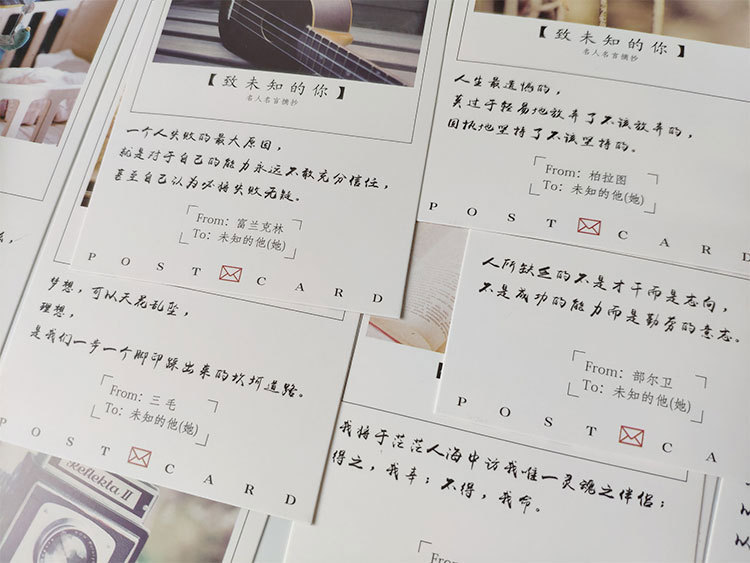 【致未知的你】
名人名言摘抄
一个人失败的最大原因，
就是对于自己的能力永远不敢充分信任，
甚至自己认为必将失败无疑。
From：富兰克林
To：未知的他(她)
POSTCARD
【致未知的你】
名人名言摘抄
人生最遗憾的，
莫过于轻易地放弃了不该放弃的，
固执地坚持了不该坚持的。
From：柏拉图
To：未知的他(她)
POSTCARD
梦想，可以天花乱坠，
理想，
是我们一步一个脚印踩出来的坎坷道路。
From：三毛
To：未知的他(她)
POSTCARD
人所缺乏的不是才干而是志向，
不是成功的能力而是勤劳的意志。
From：部尔卫
To：未知的他(她)
POST CA
我将于茫茫人海中访我唯一灵魂之伴侣；
得之，我幸；不得，我命。
From：
Reflekta II